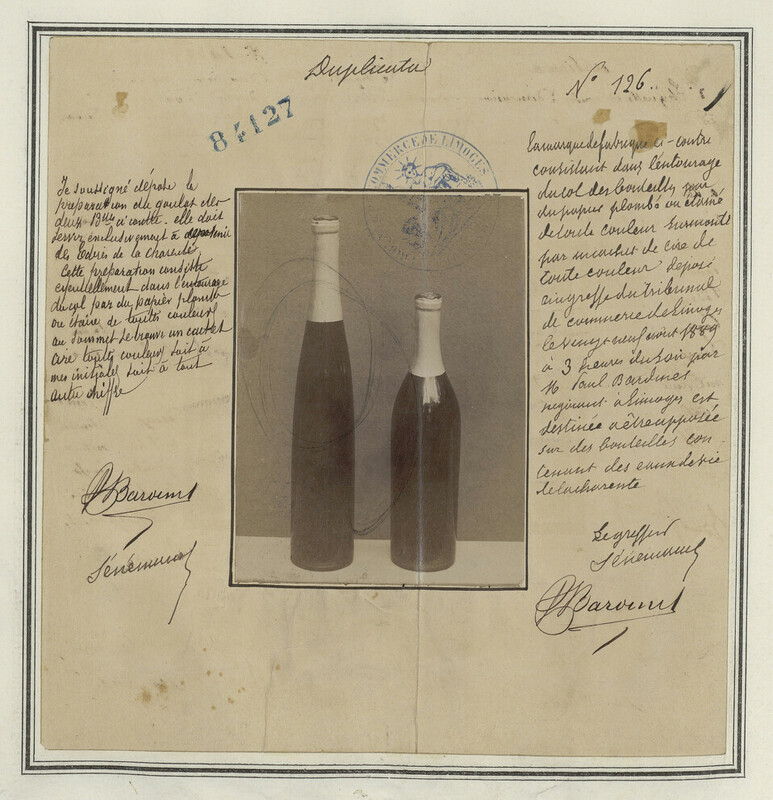 Duplicata
N° 126.
84127
COMMERCE DE LIMOGES
Je soussigné dépose la
preparation du goulot des
deux Blles ci contre. elle doit
servir exclusivement à
des Eaux de la charente
Cette preparation consiste
essentiellement dans l'entourage
du col par du papier plombé
ou étain de toutes couleurs
au sommet se trouve un cachet
cire toutes couleurs soit à
mes initiales soit à tout
autre chiffre
La marque de fabrique ci-contre
consistant dans l'entourage
du col des bouteilles par
du papier plombé ou étamé
de toute couleur surmonté
par un cachet de cire de
toute couleur déposé
au greffe du tribunal
de commerce de Limoges
le vingt neuf août 1889
à 3 heures du soir par
M Paul Bardinet
négociant à Limoges est
destinée à être apposée
sur des bouteilles con-
tenant des eaux de vie
de la charente
Le greffier